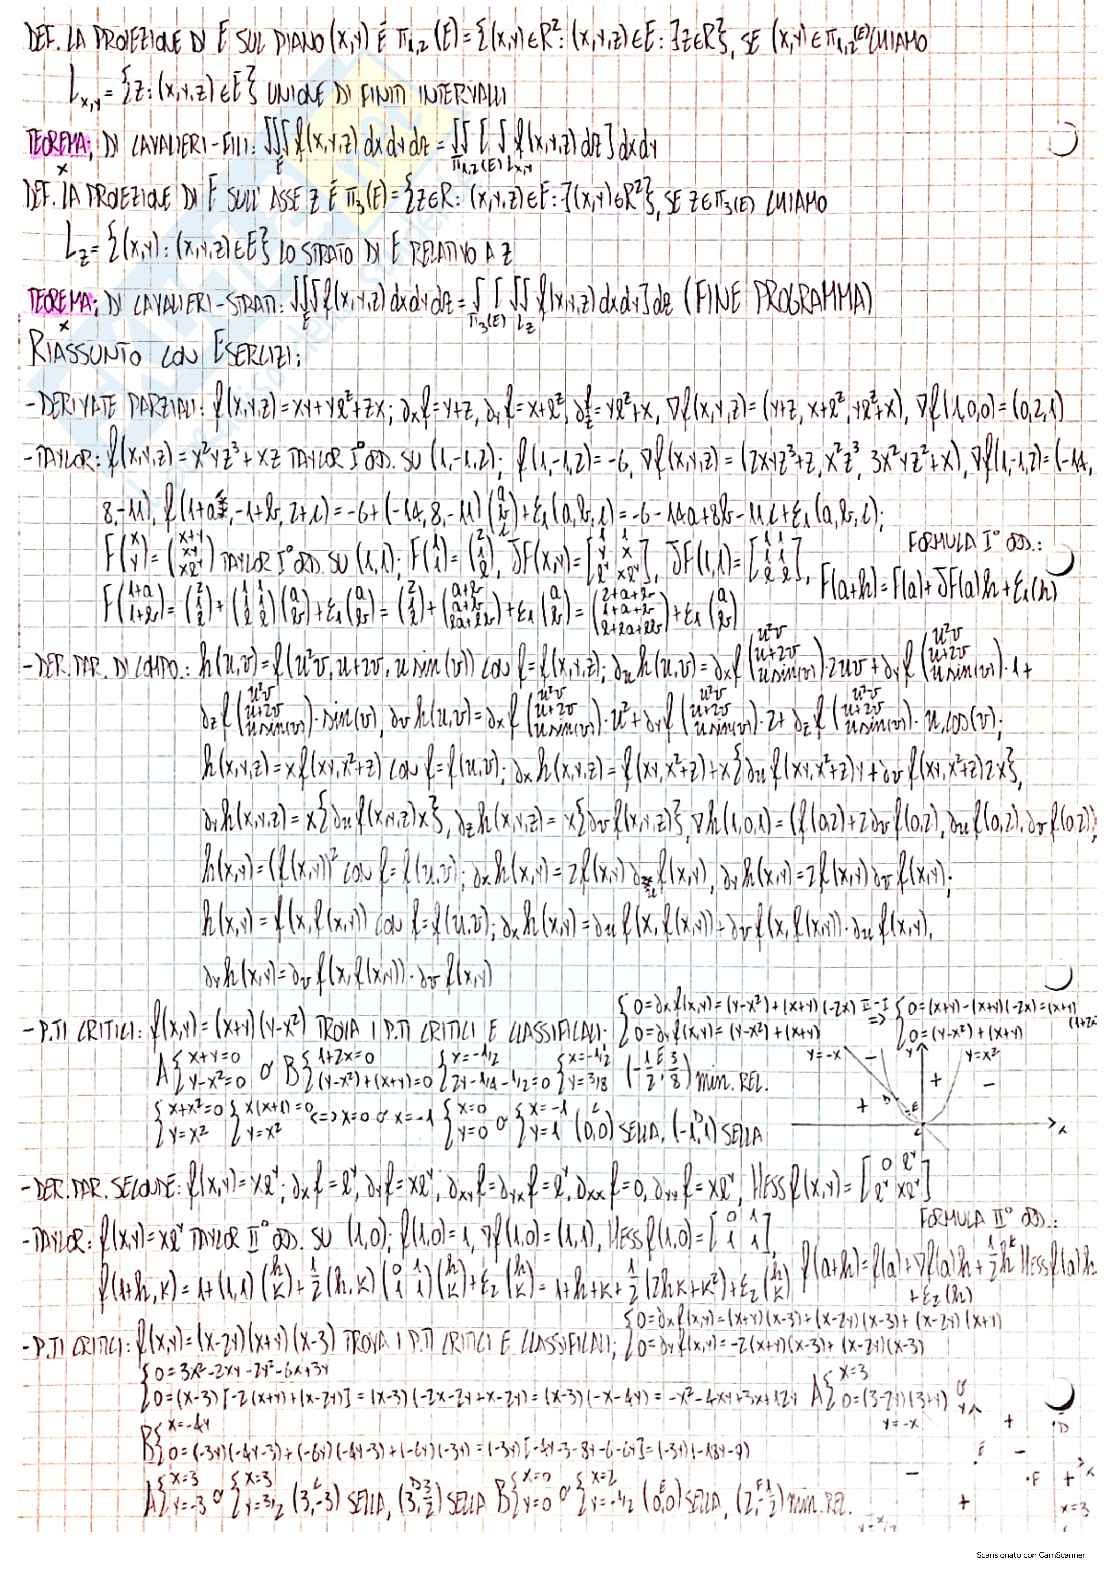 DEF. LA PROIEZIONE DI E SUL PIANO (x,y) É π₁,₂(E) = {(x,y)∈R²: (x,y,z)∈E: ∃z∈R}, SE (x,y)∈π₁,₂(E) CHIAMO
L_x,y = {z: (x,y,z)∈E} UNIONE DI FINITI INTERVALLI
TEOREMA: DI CAVALIERI-FILI: ∭_E f(x,y,z) dxdydz = ∬_π₁,₂(E) [ ∫_L_x,y f(x,y,z) dz ] dxdy
DEF. LA PROIEZIONE DI E SULL'ASSE z É π₃(E) = {z∈R: (x,y,z)∈E: ∃(x,y)∈R²}, SE z∈π₃(E) CHIAMO
L_z = {(x,y): (x,y,z)∈E} LO STRATO DI E RELATIVO A z
TEOREMA: DI CAVALIERI-STRATI: ∭_E f(x,y,z) dxdydz = ∫_π₃(E) [ ∬_L_z f(x,y,z) dxdy ] dz (FINE PROGRAMMA)
RIASSUNTO CON ESERCIZI:
- DERIVATE PARZIALI: f(x,y,z) = xy+ye^z+zx; ∂xf = y+z, ∂yf = x+e^z, ∂zf = ye^z+x, ∇f(x,y,z) = (y+z, x+e^z, ye^z+x), ∇f(1,0,0) = (0,2,1)
- TAYLOR: f(x,y,z) = x²yz³+xz TAYLOR I° ORD. SU (1,-1,2); f(1,-1,2) = -6, ∇f(x,y,z) = (2xyz³+z, x²z³, 3x²yz²+x), ∇f(1,-1,2) = (-14,
8,-11), f(1+a, -1+b, 2+c) = -6+(-14,8,-11)(a b c)+ε₁(a,b,c) = -6-14a+8b-11c+ε₁(a,b,c);
F(x y) = (x+y xy xe^y) TAYLOR I° ORD. SU (1,1); F(1 1) = (2 1 e), JF(x,y) = [1 1 y x e^y xe^y], JF(1,1) = [1 1 1 1 e e], FORMULA I° ORD.: F(a+h) = F(a)+JF(a)h+ε₁(h)
F(1+a 1+b) = (2 1 e)+(1 1 1 1 e e)(a b)+ε₁(a b) = (2 1 e)+(a+b a+b ea+eb)+ε₁(a b) = (2+a+b 1+a+b e+ea+eb)+ε₁(a b)
- DER. PAR. DI COMPO.: h(u,v) = f(u²v, u+2v, u sin(v)) CON f=f(x,y,z); ∂u h(u,v) = ∂xf(u²v u+2v u sin(v))·2uv+∂yf(u²v u+2v u sin(v))·1+
∂zf(u²v u+2v u sin(v))·sin(v), ∂v h(u,v) = ∂xf(u²v u+2v u sin(v))·u²+∂yf(u²v u+2v u sin(v))·2+∂zf(u²v u+2v u sin(v))·u cos(v);
h(x,y,z) = xf(xy, x²+z) CON f=f(u,v); ∂x h(x,y,z) = f(xy, x²+z)+x{∂u f(xy, x²+z)y+∂v f(xy, x²+z)2x},
∂y h(x,y,z) = x{∂u f(x,y,z)x}, ∂z h(x,y,z) = x{∂v f(x,y,z)}, ∇h(1,0,1) = (f(0,2)+2∂v f(0,2), ∂u f(0,2), ∂v f(0,2));
h(x,y) = (f(x,y))² CON f=f(u,v); ∂x h(x,y) = 2f(x,y)∂u f(x,y), ∂y h(x,y) = 2f(x,y)∂v f(x,y);
h(x,y) = f(x, f(x,y)) CON f=f(u,v); ∂x h(x,y) = ∂u f(x, f(x,y))+∂v f(x, f(x,y))·∂u f(x,y),
∂y h(x,y) = ∂v f(x, f(x,y))·∂v f(x,y)
- P.TI CRITICI: f(x,y) = (x+y)(y-x²) TROVA I P.TI CRITICI E CLASSIFICALI: {0=∂xf(x,y)=(y-x²)+(x+y)(-2x) II-I {0=(x+y)-(x+y)(-2x)=(x+y)(1+2x)
{0=∂yf(x,y)=(y-x²)+(x+y) => {0=(y-x²)+(x+y)
A{x+y=0 y-x²=0 o B{1+2x=0 (y-x²)+(x+y)=0 {x=-1/2 2y-1/4-1/2=0 {x=-1/2 y=3/8 E (-1/2, 3/8) min. REL.
y=-x y y=x² + - + - x
{x+x²=0 y=x² {x(x+1)=0 y=x² <=> x=0 o x=-1 {x=0 y=0 o {x=-1 y=1 C (0,0) SELLA, D (-1,1) SELLA
- DER. PAR. SECONDE: f(x,y) = xe^y; ∂xf = e^y, ∂yf = xe^y, ∂xyf = ∂yxf = e^y, ∂xxf = 0, ∂yyf = xe^y, HESSf(x,y) = [0 e^y e^y xe^y]
- TAYLOR: f(x,y) = xe^y TAYLOR II° ORD. SU (1,0); f(1,0) = 1, ∇f(1,0) = (1,1), HESSf(1,0) = [0 1 1 1], FORMULA II° ORD.:
f(1+h,k) = 1+(1,1)(h k)+1/2(h,k)(0 1 1 1)(h k)+ε₂(h k) = 1+h+k+1/2(2hk+k²)+ε₂(h k) f(a+h) = f(a)+∇f(a)h+1/2 h^t HESSf(a)h +ε₂(h)
- P.TI CRITICI: f(x,y) = (x-2y)(x+y)(x-3) TROVA I P.TI CRITICI E CLASSIFICALI; {0=∂xf(x,y)=(x+y)(x-3)+(x-2y)(x-3)+(x-2y)(x+y)
{0=∂yf(x,y)=-2(x+y)(x-3)+(x-2y)(x-3)
{0=3x²-2xy-2y²-6x+3y
{0=(x-3)[-2(x+y)+(x-2y)] = (x-3)(-2x-2y+x-2y) = (x-3)(-x-4y) = -x²-4xy+3x+12y A{x=3 0=(3-2y)(3+y) o
B{x=-4y
0=(-3y)(-4y-3)+(-6y)(-4y-3)+(-6y)(-3y) = (-3y)[-4y-3-8y-6-6y] = (-3y)(-18y-9)
A{x=3 y=-3 o {x=3 y=3/2 C (3,-3) SELLA, D (3,3/2) SELLA B{x=0 y=0 o {x=2 y=-1/2 E (0,0) SELLA, F (2,-1/2) min. REL.
y=-x y + D E - - F + x + x=3
Scansionato con CamScanner